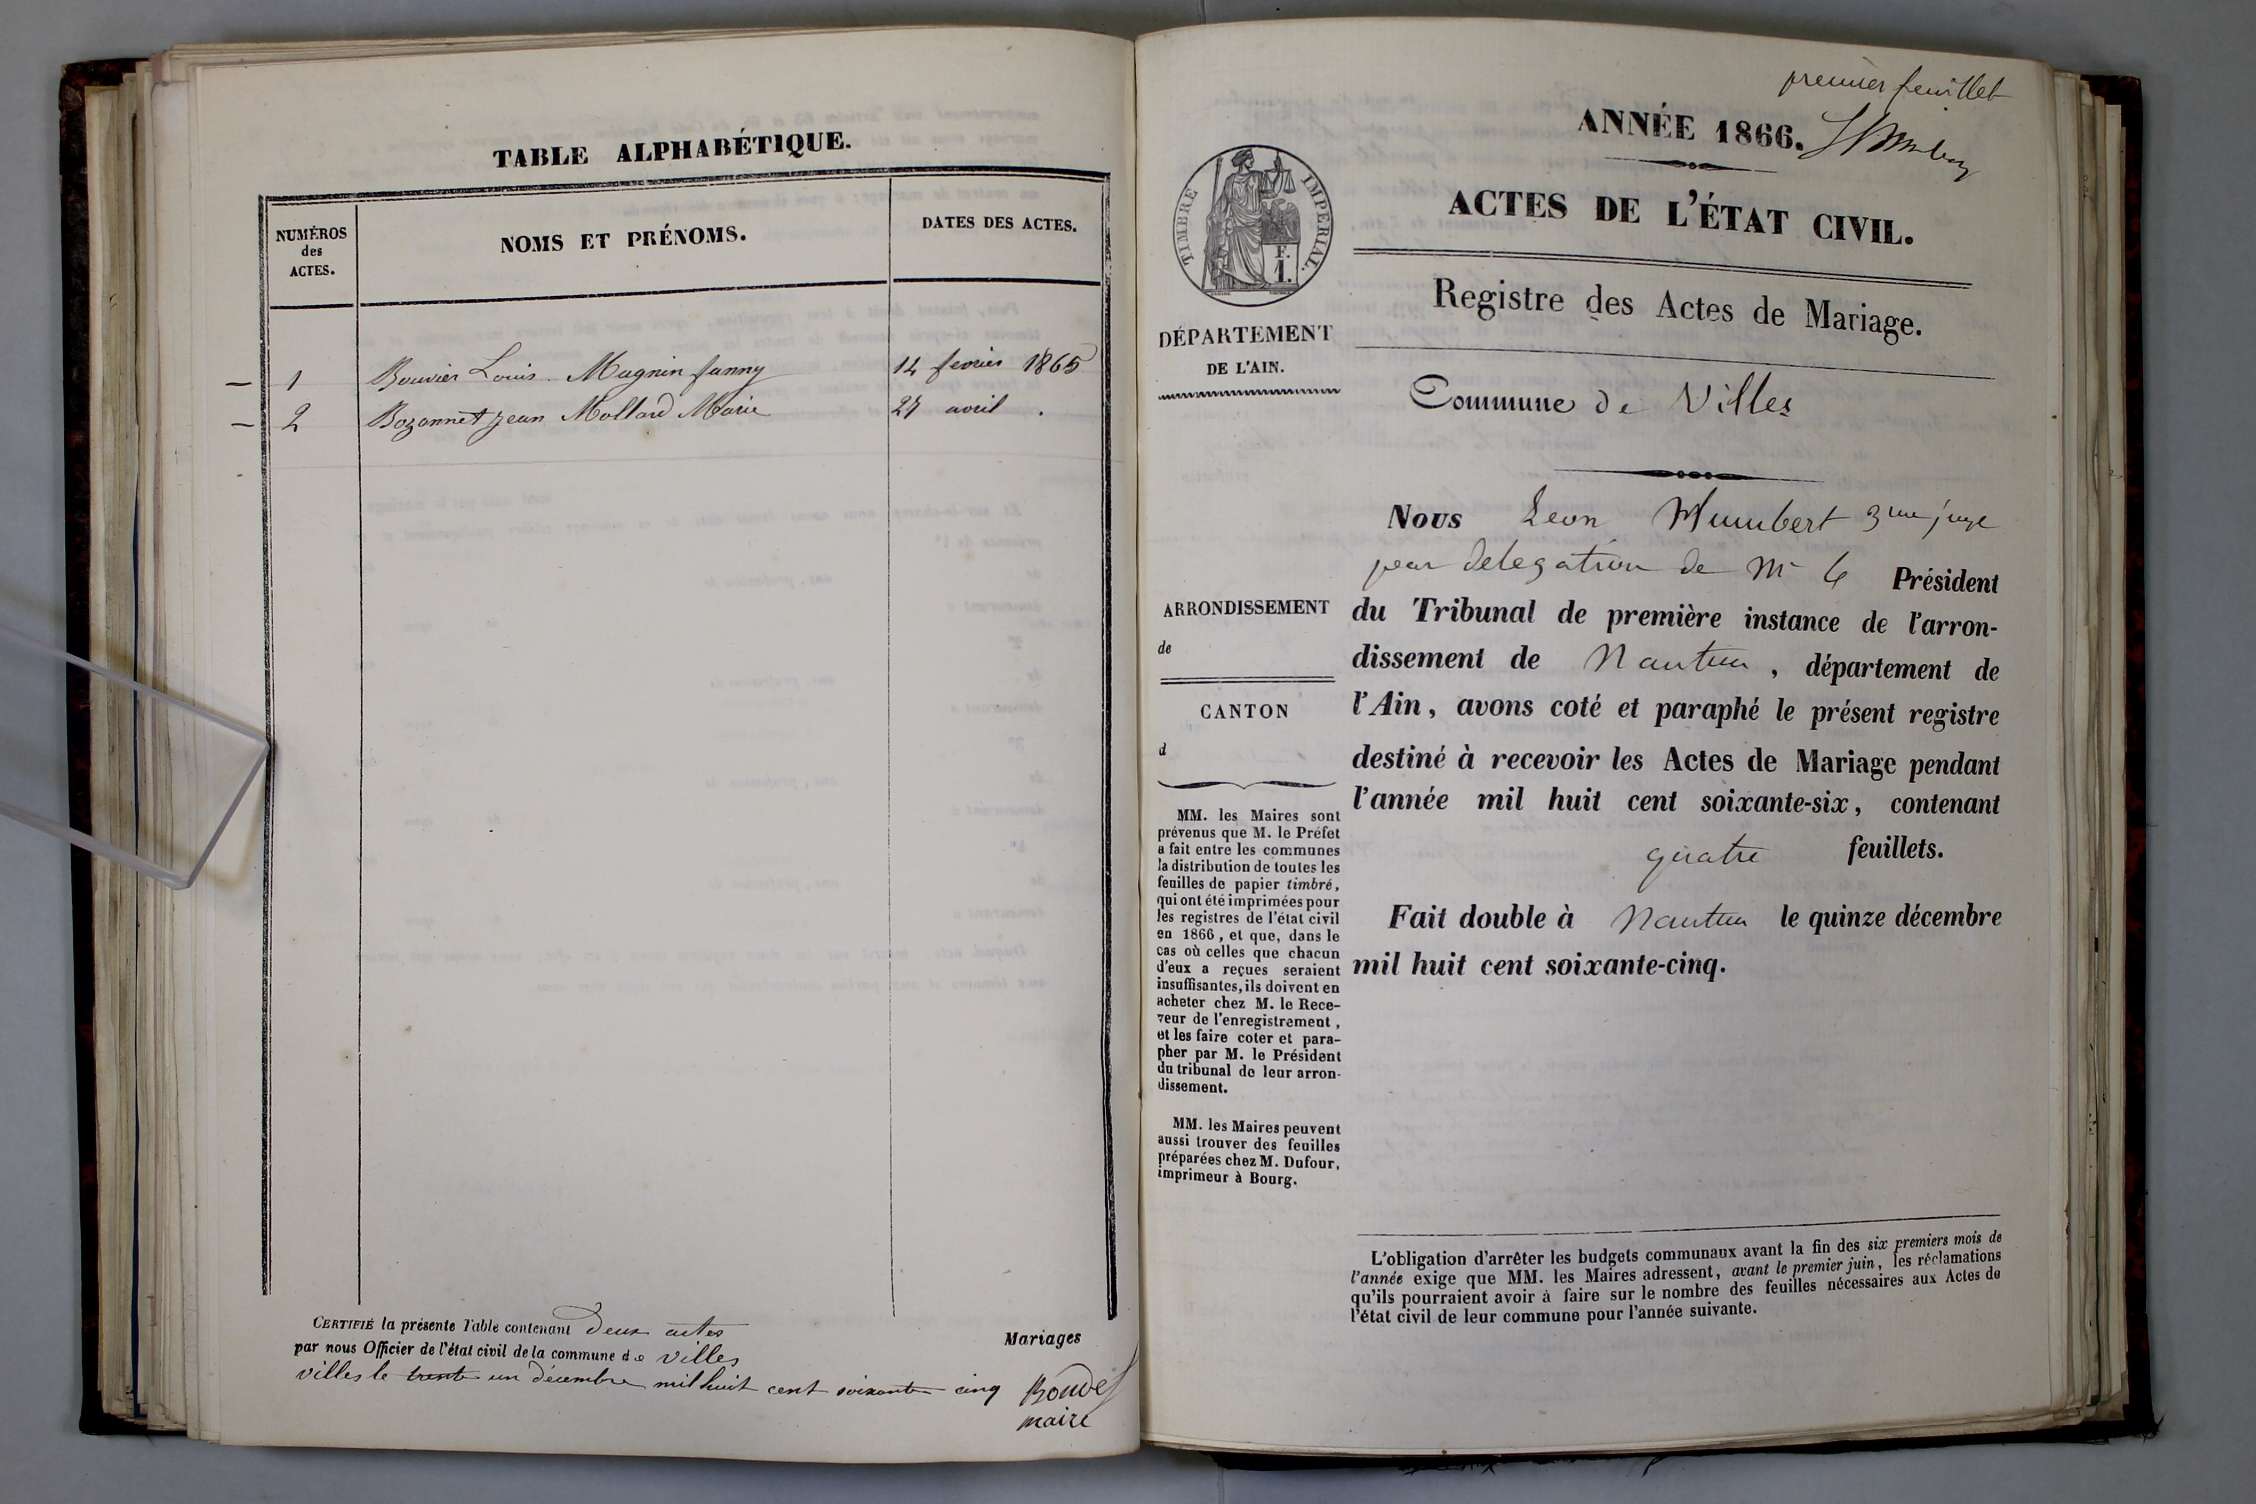 TABLE ALPHABÉTIQUE.
NUMÉROS
des
ACTES.
NOMS ET PRÉNOMS.
DATES DES ACTES.
1 Bouvier Louis Magnin fanny 14 fevrier 1865
2 Bozonnet jean Mollard Marie 27 avril .
CERTIFIÉ la présente Table contenant deux actes
par nous Officier de l'état civil de la commune de villes
villes le trente un décembre mil huit cent soixante cinq
Mariages
maire
premier feuillet
ANNÉE 1866.
ACTES DE L'ÉTAT CIVIL.
Registre des Actes de Mariage.
Commune de Villes
TIMBRE IMPERIAL.
F.
1.
DÉPARTEMENT
DE L'AIN.
ARRONDISSEMENT
de
CANTON
d
MM. les Maires sont
prévenus que M. le Préfet
a fait entre les communes
la distribution de toutes les
feuilles de papier timbré,
qui ont été imprimées pour
les registres de l'état civil
en 1866, et que, dans le
cas où celles que chacun
d'eux a reçues seraient
insuffisantes, ils doivent en
acheter chez M. le Rece-
veur de l'enregistrement,
et les faire coter et para-
pher par M. le Président
du tribunal de leur arron-
dissement.
MM. les Maires peuvent
aussi trouver des feuilles
préparées chez M. Dufour,
imprimeur à Bourg.
Nous Leon Humbert 3me juge
par delegation de Mr le Président
du Tribunal de première instance de l'arron-
dissement de Nantua, département de
l'Ain, avons coté et paraphé le présent registre
destiné à recevoir les Actes de Mariage pendant
l'année mil huit cent soixante-six, contenant
quatre feuillets.
Fait double à Nantua le quinze décembre
mil huit cent soixante-cinq.
L'obligation d'arrêter les budgets communaux avant la fin des six premiers mois de
l'année exige que MM. les Maires adressent, avant le premier juin, les réclamations
qu'ils pourraient avoir à faire sur le nombre des feuilles nécessaires aux Actes de
l'état civil de leur commune pour l'année suivante.